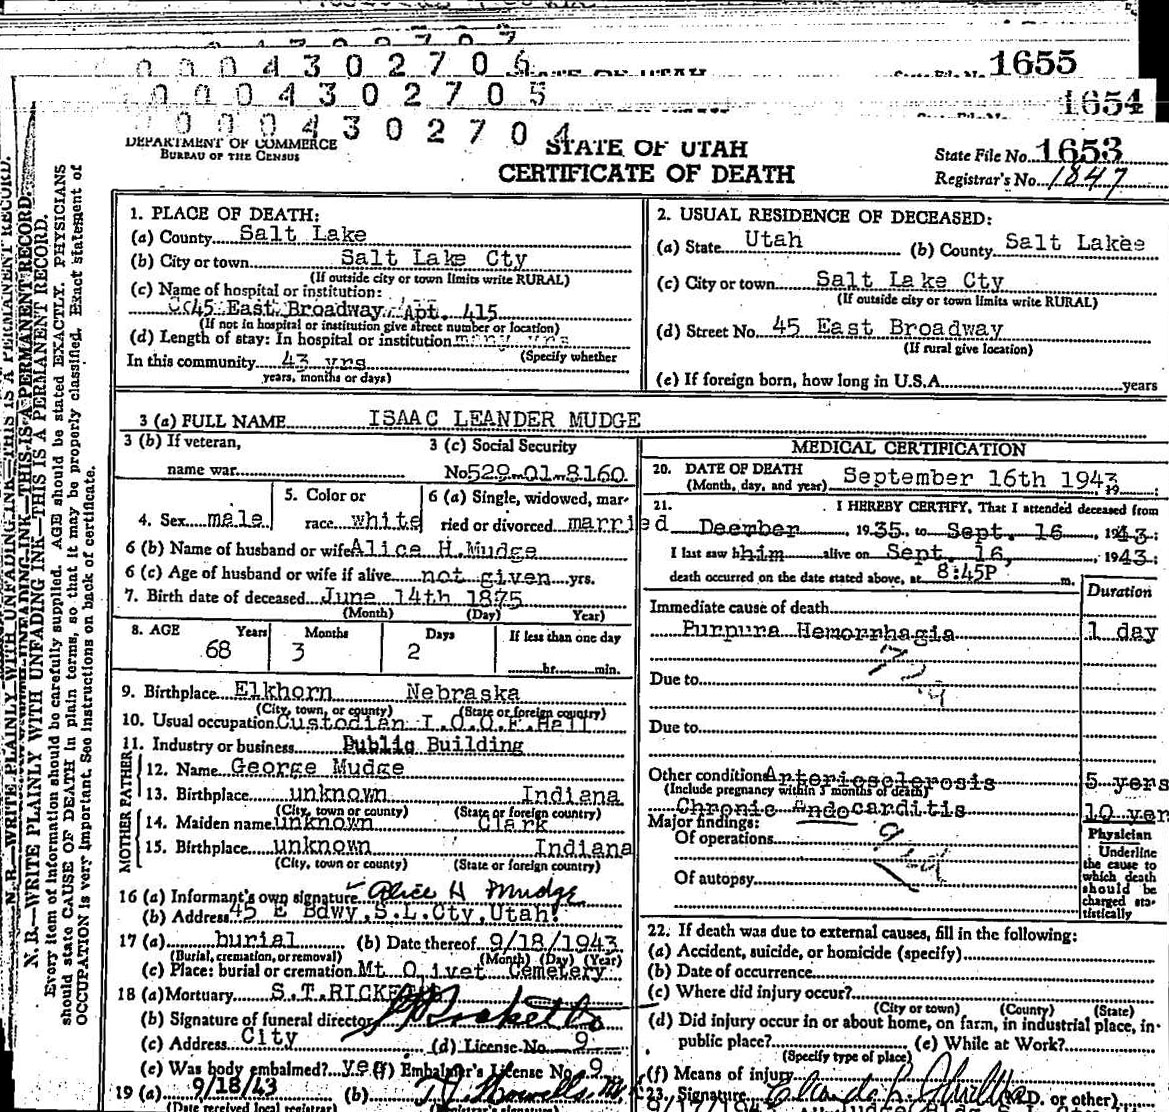 0004302706
STATE OF UTAH
State File No. 1655
0004302705
1654
State File No.
0004302704
DEPARTMENT OF COMMERCE
BUREAU OF THE CENSUS
STATE OF UTAH
CERTIFICATE OF DEATH
State File No. 1653
Registrar's No. 1847
N. B.—WRITE PLAINLY WITH UNFADING INK—THIS IS A PERMANENT RECORD.
Every item of information should be carefully supplied. AGE should be stated EXACTLY. PHYSICIANS
should state CAUSE OF DEATH in plain terms, so that it may be properly classified. Exact statement of
OCCUPATION is very important. See instructions on back of certificate.
1. PLACE OF DEATH:
(a) County Salt Lake
(b) City or town Salt Lake Cty
(If outside city or town limits write RURAL)
(c) Name of hospital or institution:
45 East Broadway Apt. 415
(If not in hospital or institution give street number or location)
(d) Length of stay: In hospital or institution many yrs
(Specify whether
In this community 43 yrs
years, months or days)
2. USUAL RESIDENCE OF DECEASED:
(a) State Utah (b) County Salt Lake
(c) City or town Salt Lake Cty
(If outside city or town limits write RURAL)
(d) Street No. 45 East Broadway
(If rural give location)
(e) If foreign born, how long in U.S.A. years
3 (a) FULL NAME ISAAC LEANDER MUDGE
3 (b) If veteran, 3 (c) Social Security
name war No. 529-01-8160
4. Sex male 5. Color or race white 6 (a) Single, widowed, married or divorced married
6 (b) Name of husband or wife Alice H.Mudge
6 (c) Age of husband or wife if alive not given yrs.
7. Birth date of deceased June 14th 1875
(Month) (Day) Year)
8. AGE Years Months Days If less than one day
68 3 2 hr. min.
9. Birthplace Elkhorn Nebraska
(City, town, or county) (State or foreign country)
10. Usual occupation Custodian I.O.O.F.Hall
11. Industry or business Public Building
FATHER
12. Name George Mudge
13. Birthplace unknown Indiana
(City, town or county) (State or foreign country)
MOTHER
14. Maiden name unknown Clark
15. Birthplace unknown Indiana
(City, town, or county) (State or foreign country)
16 (a) Informant's own signature Alice H Mudge
(b) Address 45 E Bdwy,S.L.Cty,Utah.
17 (a) burial (b) Date thereof 9/18/1943
(Burial, cremation, or removal) (Month) (Day) (Year)
(c) Place: burial or cremation Mt Olivet Cemetery
18 (a) Mortuary S.T.RICKETTS
(b) Signature of funeral director
(c) Address City (d) License No. 9
(e) Was body embalmed? yes (f) Embalmer's License No. 9
19 (a) 9/18/43 (b)
(Date received local registrar) (Registrar's signature)
MEDICAL CERTIFICATION
20. DATE OF DEATH September 16th 1943 19
(Month, day, and year)
21. I HEREBY CERTIFY, That I attended deceased from
Deember 1935 to Sept. 16, 1943;
I last saw him alive on Sept 16, 1943;
death occurred on the date stated above, at 8:45P m.
Duration
Immediate cause of death
Purpura Hemorrhagia 1 day
Due to
Due to
Other conditions Arteriosclerosis 5 yers
(Include pregnancy within 3 months of death)
Chronic Endocarditis 10 yer
Major findings:
Of operations
Of autopsy
Physician
Underline
the cause to
which death
should be
charged sta-
tistically
22. If death was due to external causes, fill in the following:
(a) Accident, suicide, or homicide (specify)
(b) Date of occurrence
(c) Where did injury occur?
(City or town) (County) (State)
(d) Did injury occur in or about home, on farm, in industrial place, in
public place? (e) While at Work?
(Specify type of place)
(f) Means of injury
23. Signature (M.D. or other)